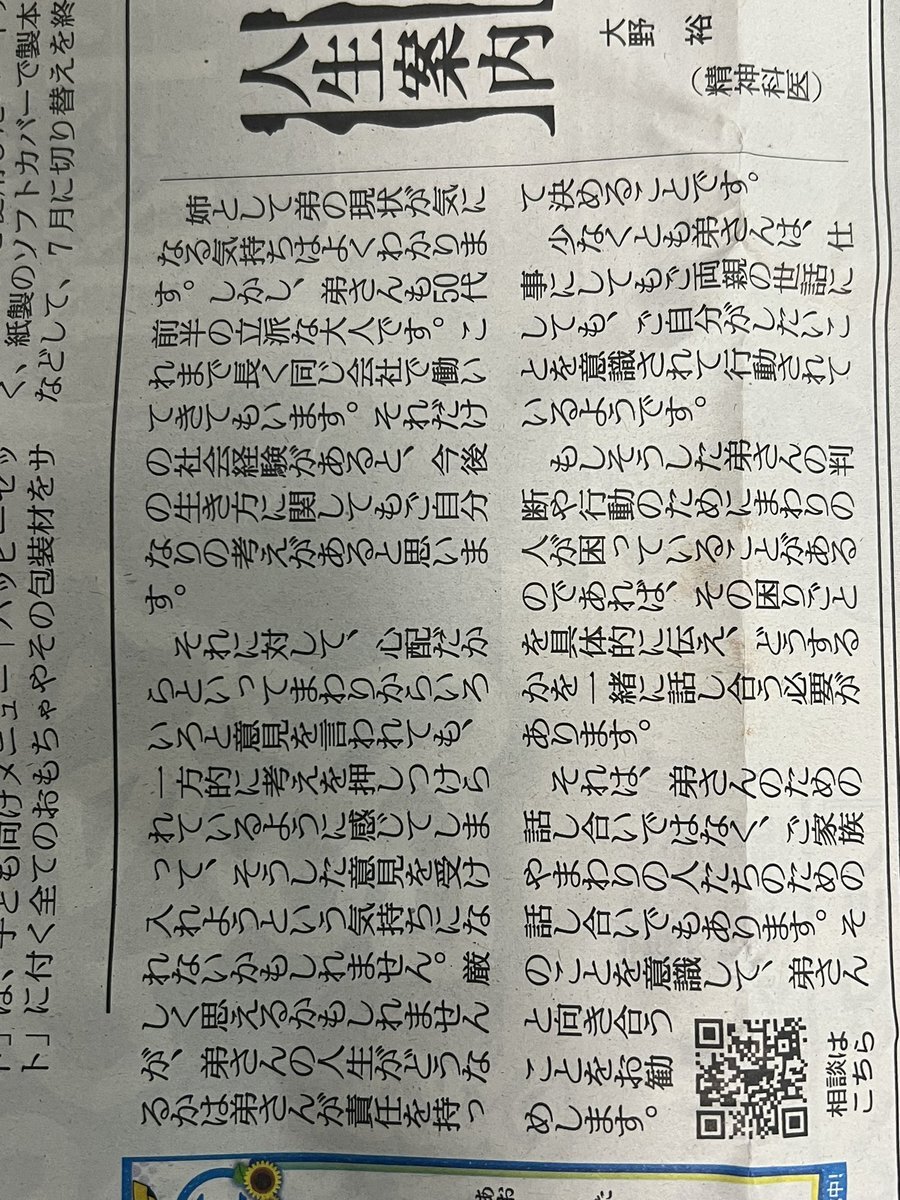 人生案内
大野 裕
(精神科医)
姉として弟の現状が気に
なる気持ちはよくわかりま
す。しかし、弟さんも50代
前半の立派な大人です。こ
れまで長く同じ会社で働い
てきてもいます。それだけ
の社会経験があると、今後
の生き方に関してもご自分
なりの考えがあると思いま
す。
それに対して、心配だか
らといってまわりからいろ
いろと意見を言われても、
一方的に考えを押しつけら
れているように感じてしま
って、そうした意見を受け
入れようという気持ちにな
れないかもしれません。厳
しく思えるかもしれません
が、弟さんの人生がどうな
るかは弟さんが責任を持っ
て決めることです。
少なくとも弟さんは、仕
事にしてもご両親の世話に
しても、ご自分がしたいこ
とを意識されて行動されて
いるようです。
もしそうした弟さんの判
断や行動のためにまわりの
人が困っていることがある
のであれば、その困りごと
を具体的に伝え、どうする
かを一緒に話し合う必要が
あります。
それは、弟さんのための
話し合いではなく、ご家族
やまわりの人たちのための
話し合いでもあります。そ
のことを意識して、弟さん
と向き合う
ことをお勧
めします。
相談は
こちら
く、紙製のソフトカバーで製本
などして、7月に切り替えを終
は、子ども向けメニュー「ハッピーセッ
ト」に付く全てのおもちゃやその包装材をサ
中!